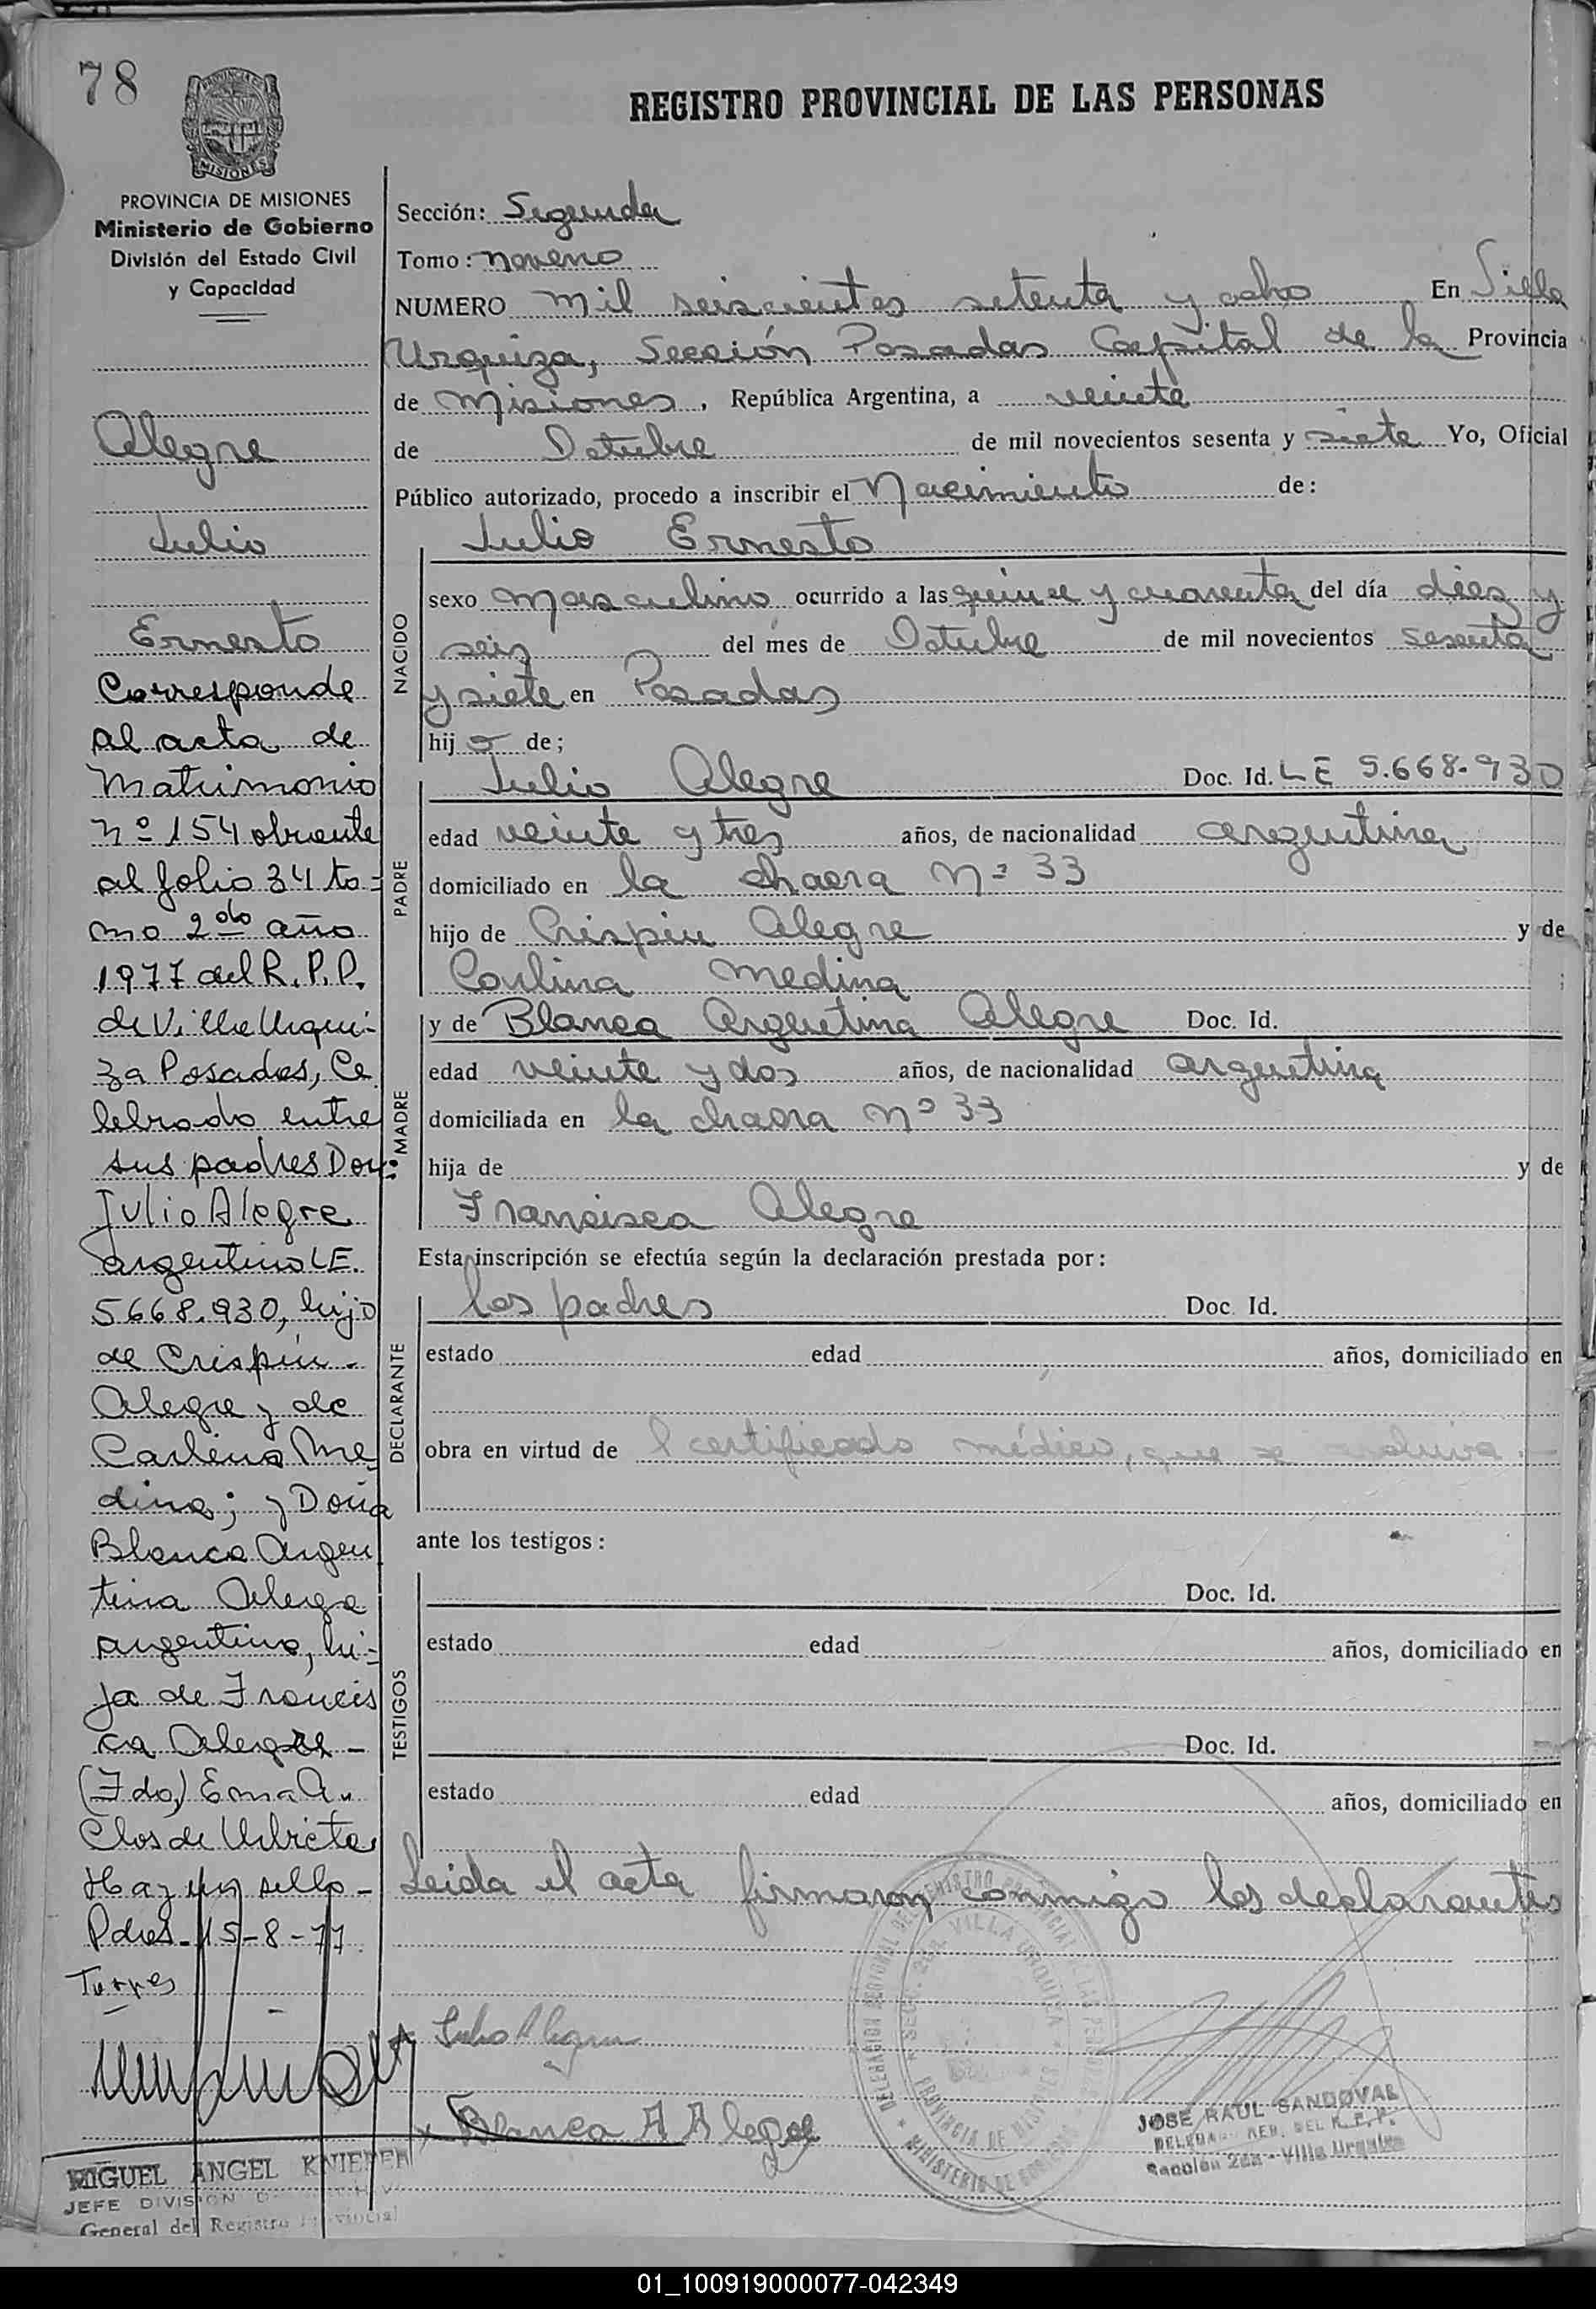 78
PROVINCIA DE MISIONES
MISIONES
PROVINCIA DE MISIONES
Ministerio de Gobierno
División del Estado Civil
y Capacidad
Alegre
Julio
Ernesto
Corresponde
al acta de
Matrimonio
nº 154 obrante
al folio 34 to-
mo 2do año
1977 del R.P.P.
de Villa Urqui-
za Posadas, Ce
lebrado entre
sus padres Don:
Julio Alegre
argentino LE.
5668.930, hijo
de Crispin
Alegre y de
Carlina Me
dina; y Doña
Blanca Argen
tina Alegre
argentina, hi-
ja de Francis
ca Alegre -
(Fdo) Ema A.
Clos de
Hay un sello -
Pdas. 15-8-77
Torres
MIGUEL ANGEL KNIEPER
JEFE DIVISION
General del Registro Provincial
REGISTRO PROVINCIAL DE LAS PERSONAS
Sección: Segunda
Tomo: noveno
NUMERO mil seiscientos setenta y ocho En Villa
Urquiza, Sección Posadas Capital de la Provincia
de Misiones, República Argentina, a veinte
de Octubre de mil novecientos sesenta y siete Yo, Oficial
Público autorizado, procedo a inscribir el Nacimiento de:
Julio Ernesto
NACIDO
sexo masculino ocurrido a las quince y cuarenta del día diez y
seis del mes de Octubre de mil novecientos sesenta
y siete en Posadas
hijo de;
PADRE
Julio Alegre Doc. Id. LE 5.668.930
edad veinte y tres años, de nacionalidad argentina
domiciliado en la chacra Nº 33
hijo de Crispin Alegre y de
Carlina Medina
MADRE
y de Blanca Argentina Alegre Doc. Id.
edad veinte y dos años, de nacionalidad argentina
domiciliada en la chacra nº 33
hija de y de
Francisca Alegre
Esta inscripción se efectúa según la declaración prestada por:
DECLARANTE
los padres Doc. Id.
estado edad años, domiciliado en
obra en virtud de l certificado médico, que se archiva.-
ante los testigos:
TESTIGOS
Doc. Id.
estado edad años, domiciliado en
Doc. Id.
estado edad años, domiciliado en
Leida el acta firmaron conmigo los declarantes
Julio Alegre
Blanca A Alegre
DELEGACION REGIONAL DEL REGISTRO PROVINCIAL DE LAS PERSONAS
SECC. 2DA. VILLA URQUIZA
PROVINCIA DE MISIONES
MINISTERIO DE GOBIERNO
JOSE RAUL SANDOVAL
DELEGADO REG. DEL R.P.P.
Sección 2da - Villa Urquiza
01_100919000077-042349